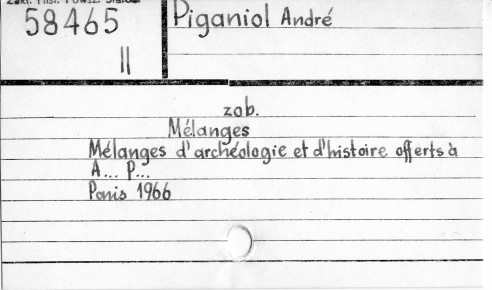 58465
II
Piganiol André
zob.
Mélanges
Mélanges d'archéologie et d'histoire offerts à
A... P...
Paris 1966